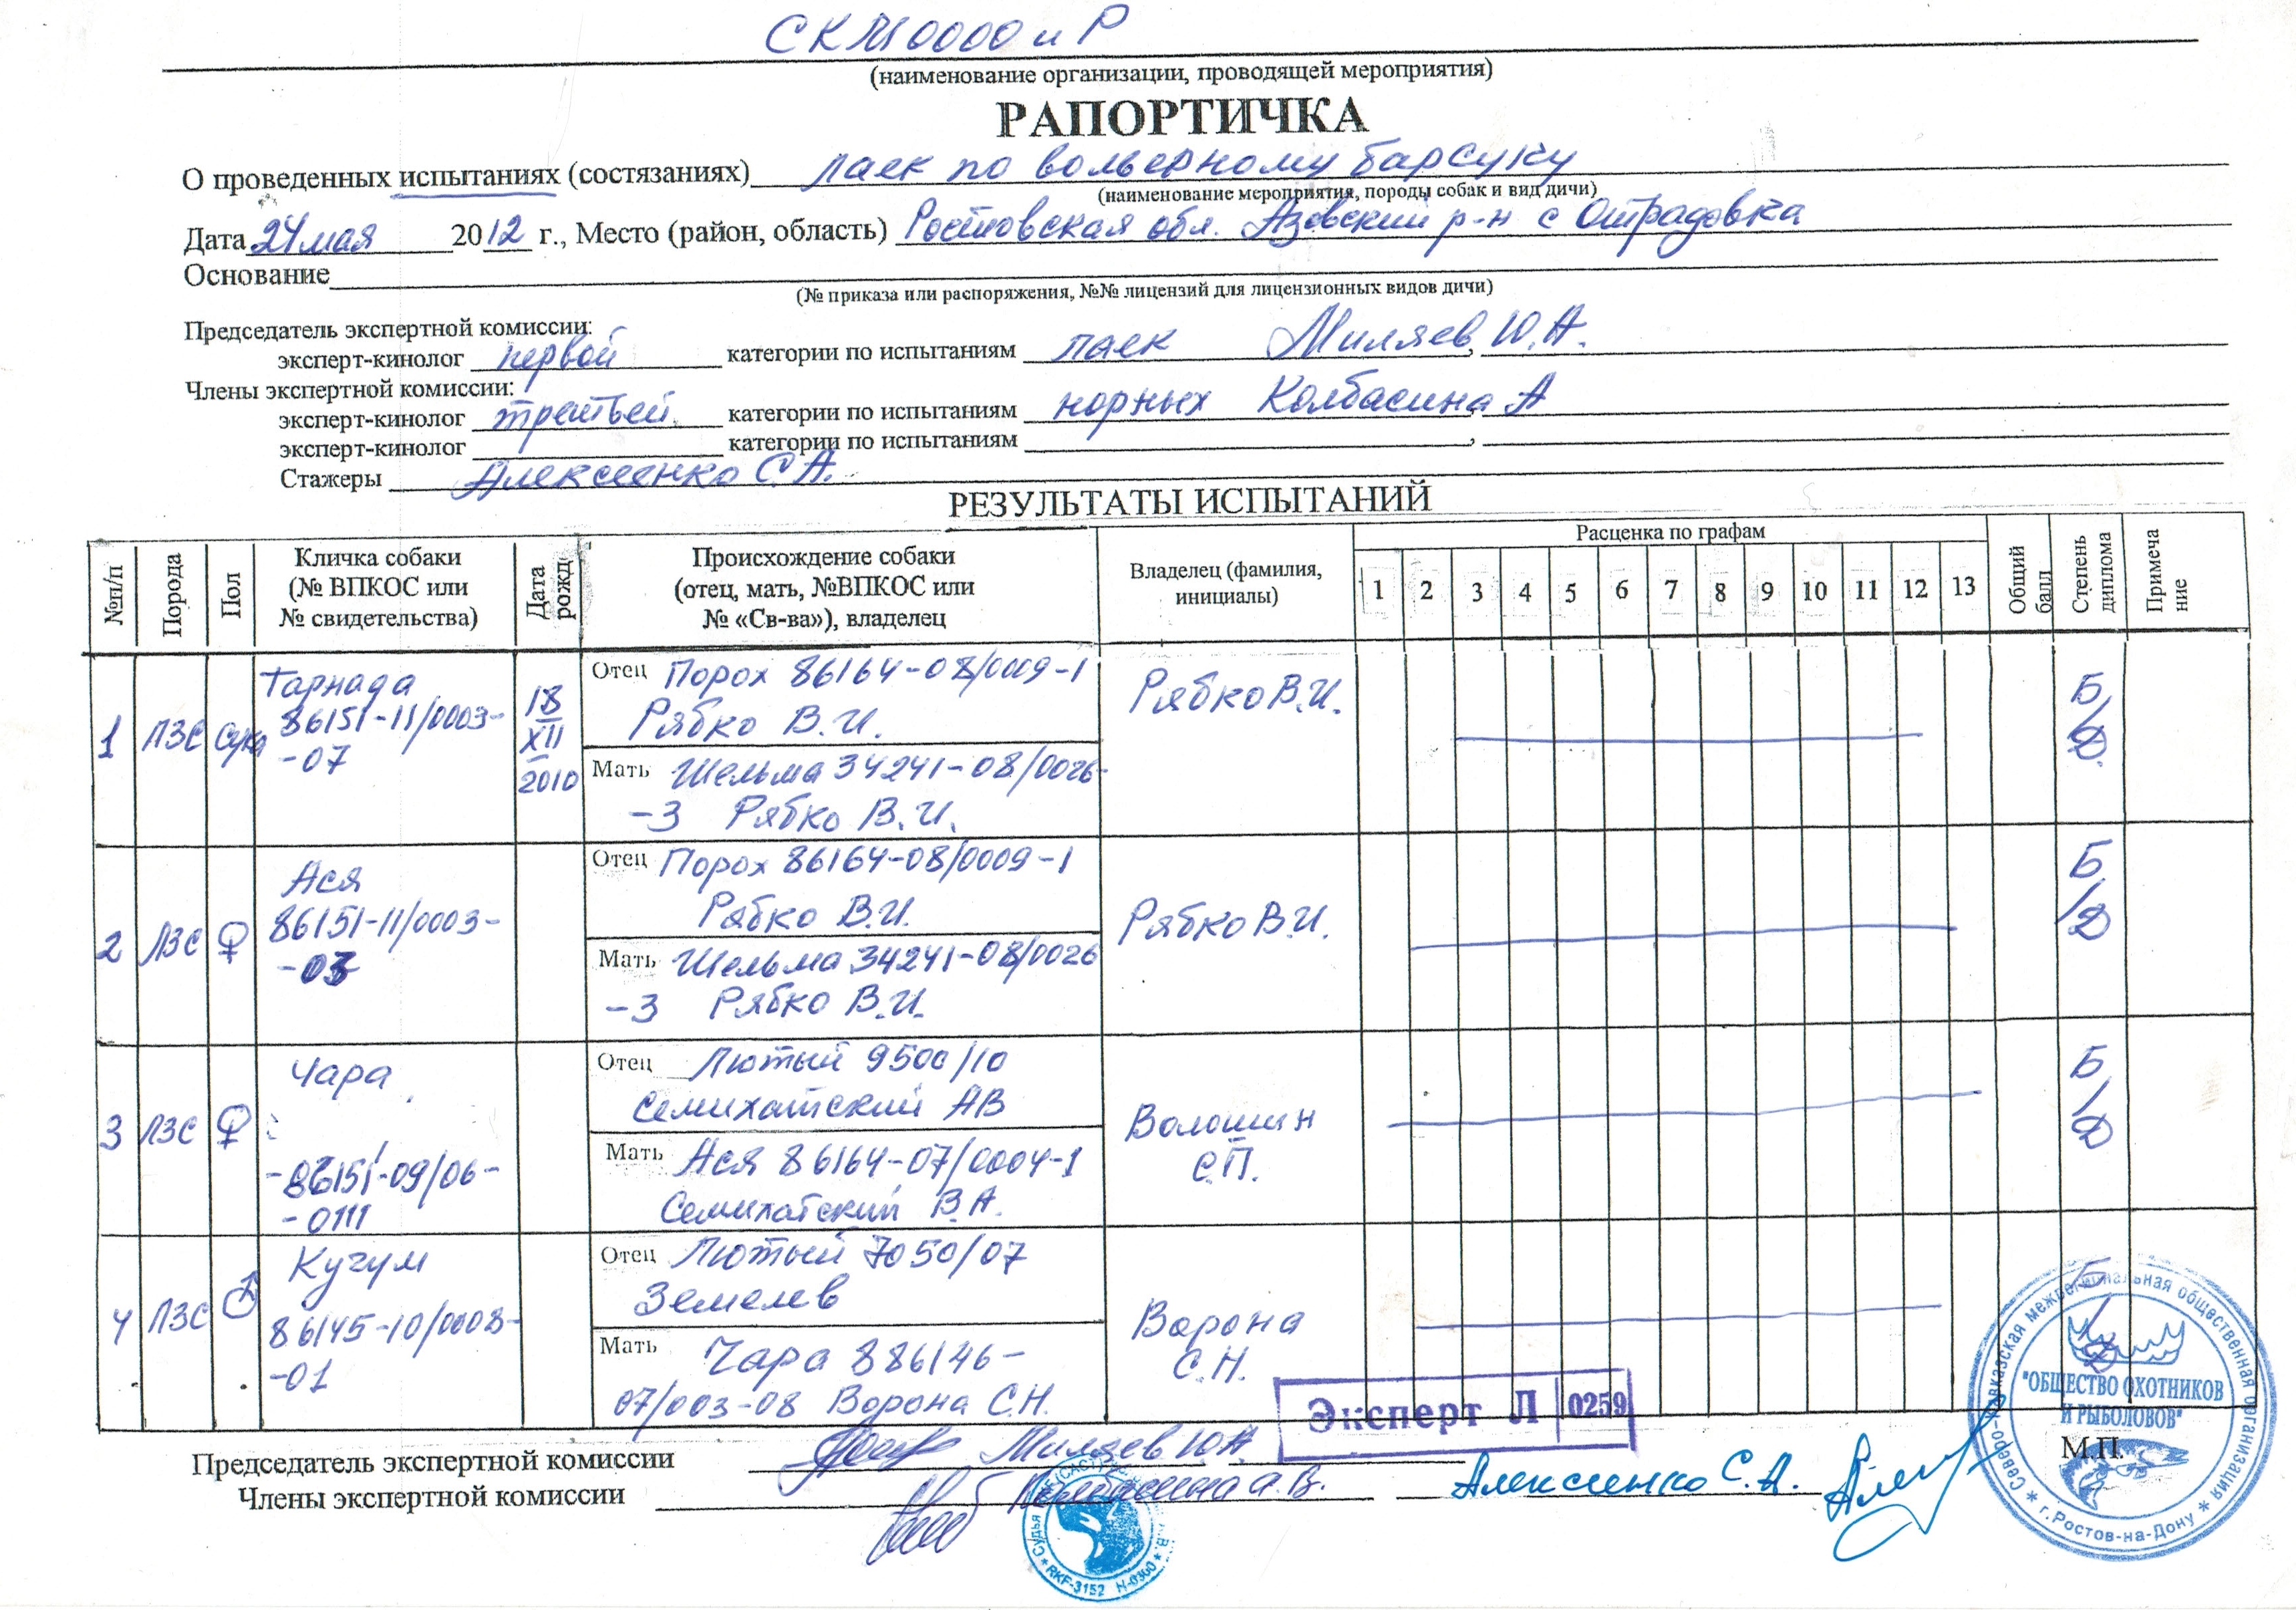 СКМОООО и Р
(наименование организации, проводящей мероприятия)
РАПОРТИЧКА
О проведенных испытаниях (состязаниях) лаек по вольерному барсуку
(наименование мероприятия, породы собак и вид дичи)
Дата 24 мая 2012 г., Место (район, область) Ростовская обл. Азовский р-н с Отрадовка
Основание
(№ приказа или распоряжения, №№ лицензий для лицензионных видов дичи)
Председатель экспертной комиссии:
эксперт-кинолог первой категории по испытаниям лаек Миляев Ю.А.
Члены экспертной комиссии:
эксперт-кинолог третьей категории по испытаниям норных Колбасина А
эксперт-кинолог категории по испытаниям ,
Стажеры Алексеенко С.А.
РЕЗУЛЬТАТЫ ИСПЫТАНИЙ
№п/п
Порода
Пол
Кличка собаки
(№ ВПКОС или
№ свидетельства)
Дата
рожд.
Происхождение собаки
(отец, мать, №ВПКОС или
№ «Св-ва»), владелец
Владелец (фамилия,
инициалы)
Расценка по графам
1 2 3 4 5 6 7 8 9 10 11 12 13
Общий
балл
Степень
диплома
Примеча
ние
1 ЛЗС сука
Тарнада
86151-11/0003-
-07
18
XII
2010
Отец Порох 86164-08/0009-1
Рябко В.И.
Мать Шельма 34241-08/0026-
-3 Рябко В.И.
Рябко В.И.
Б/Д
2 ЛЗС ♀
Ася
86151-11/0003-
-03
Отец Порох 86164-08/0009-1
Рябко В.И.
Мать Шельма 34241-08/0026
-3 Рябко В.И.
Рябко В.И.
Б/Д
3 ЛЗС ♀
Чара
-86151-09/06-
-0111
Отец Лютый 9500/10
Семихатский АВ
Мать Ася 86164-07/0004-1
Семихатский В.А.
Волошин
С.П.
Б/Д
4 ЛЗС ♂
Кугум
86145-10/0008-
-01
Отец Лютый 7050/07
Земелев
Мать Чара 886146-
07/003-08 Ворона С.Н.
Ворона
С.Н.
Б/Д
Эксперт Л 0259
Председатель экспертной комиссии Миляев Ю.А.
Члены экспертной комиссии Колбасина А.В. Алексеенко С.А.
М.П.
Северо-Кавказская межрегиональная общественная организация
"ОБЩЕСТВО ОХОТНИКОВ
И РЫБОЛОВОВ"
* г.Ростов-на-Дону *
Судья * RKF-3152 Н-0300 *